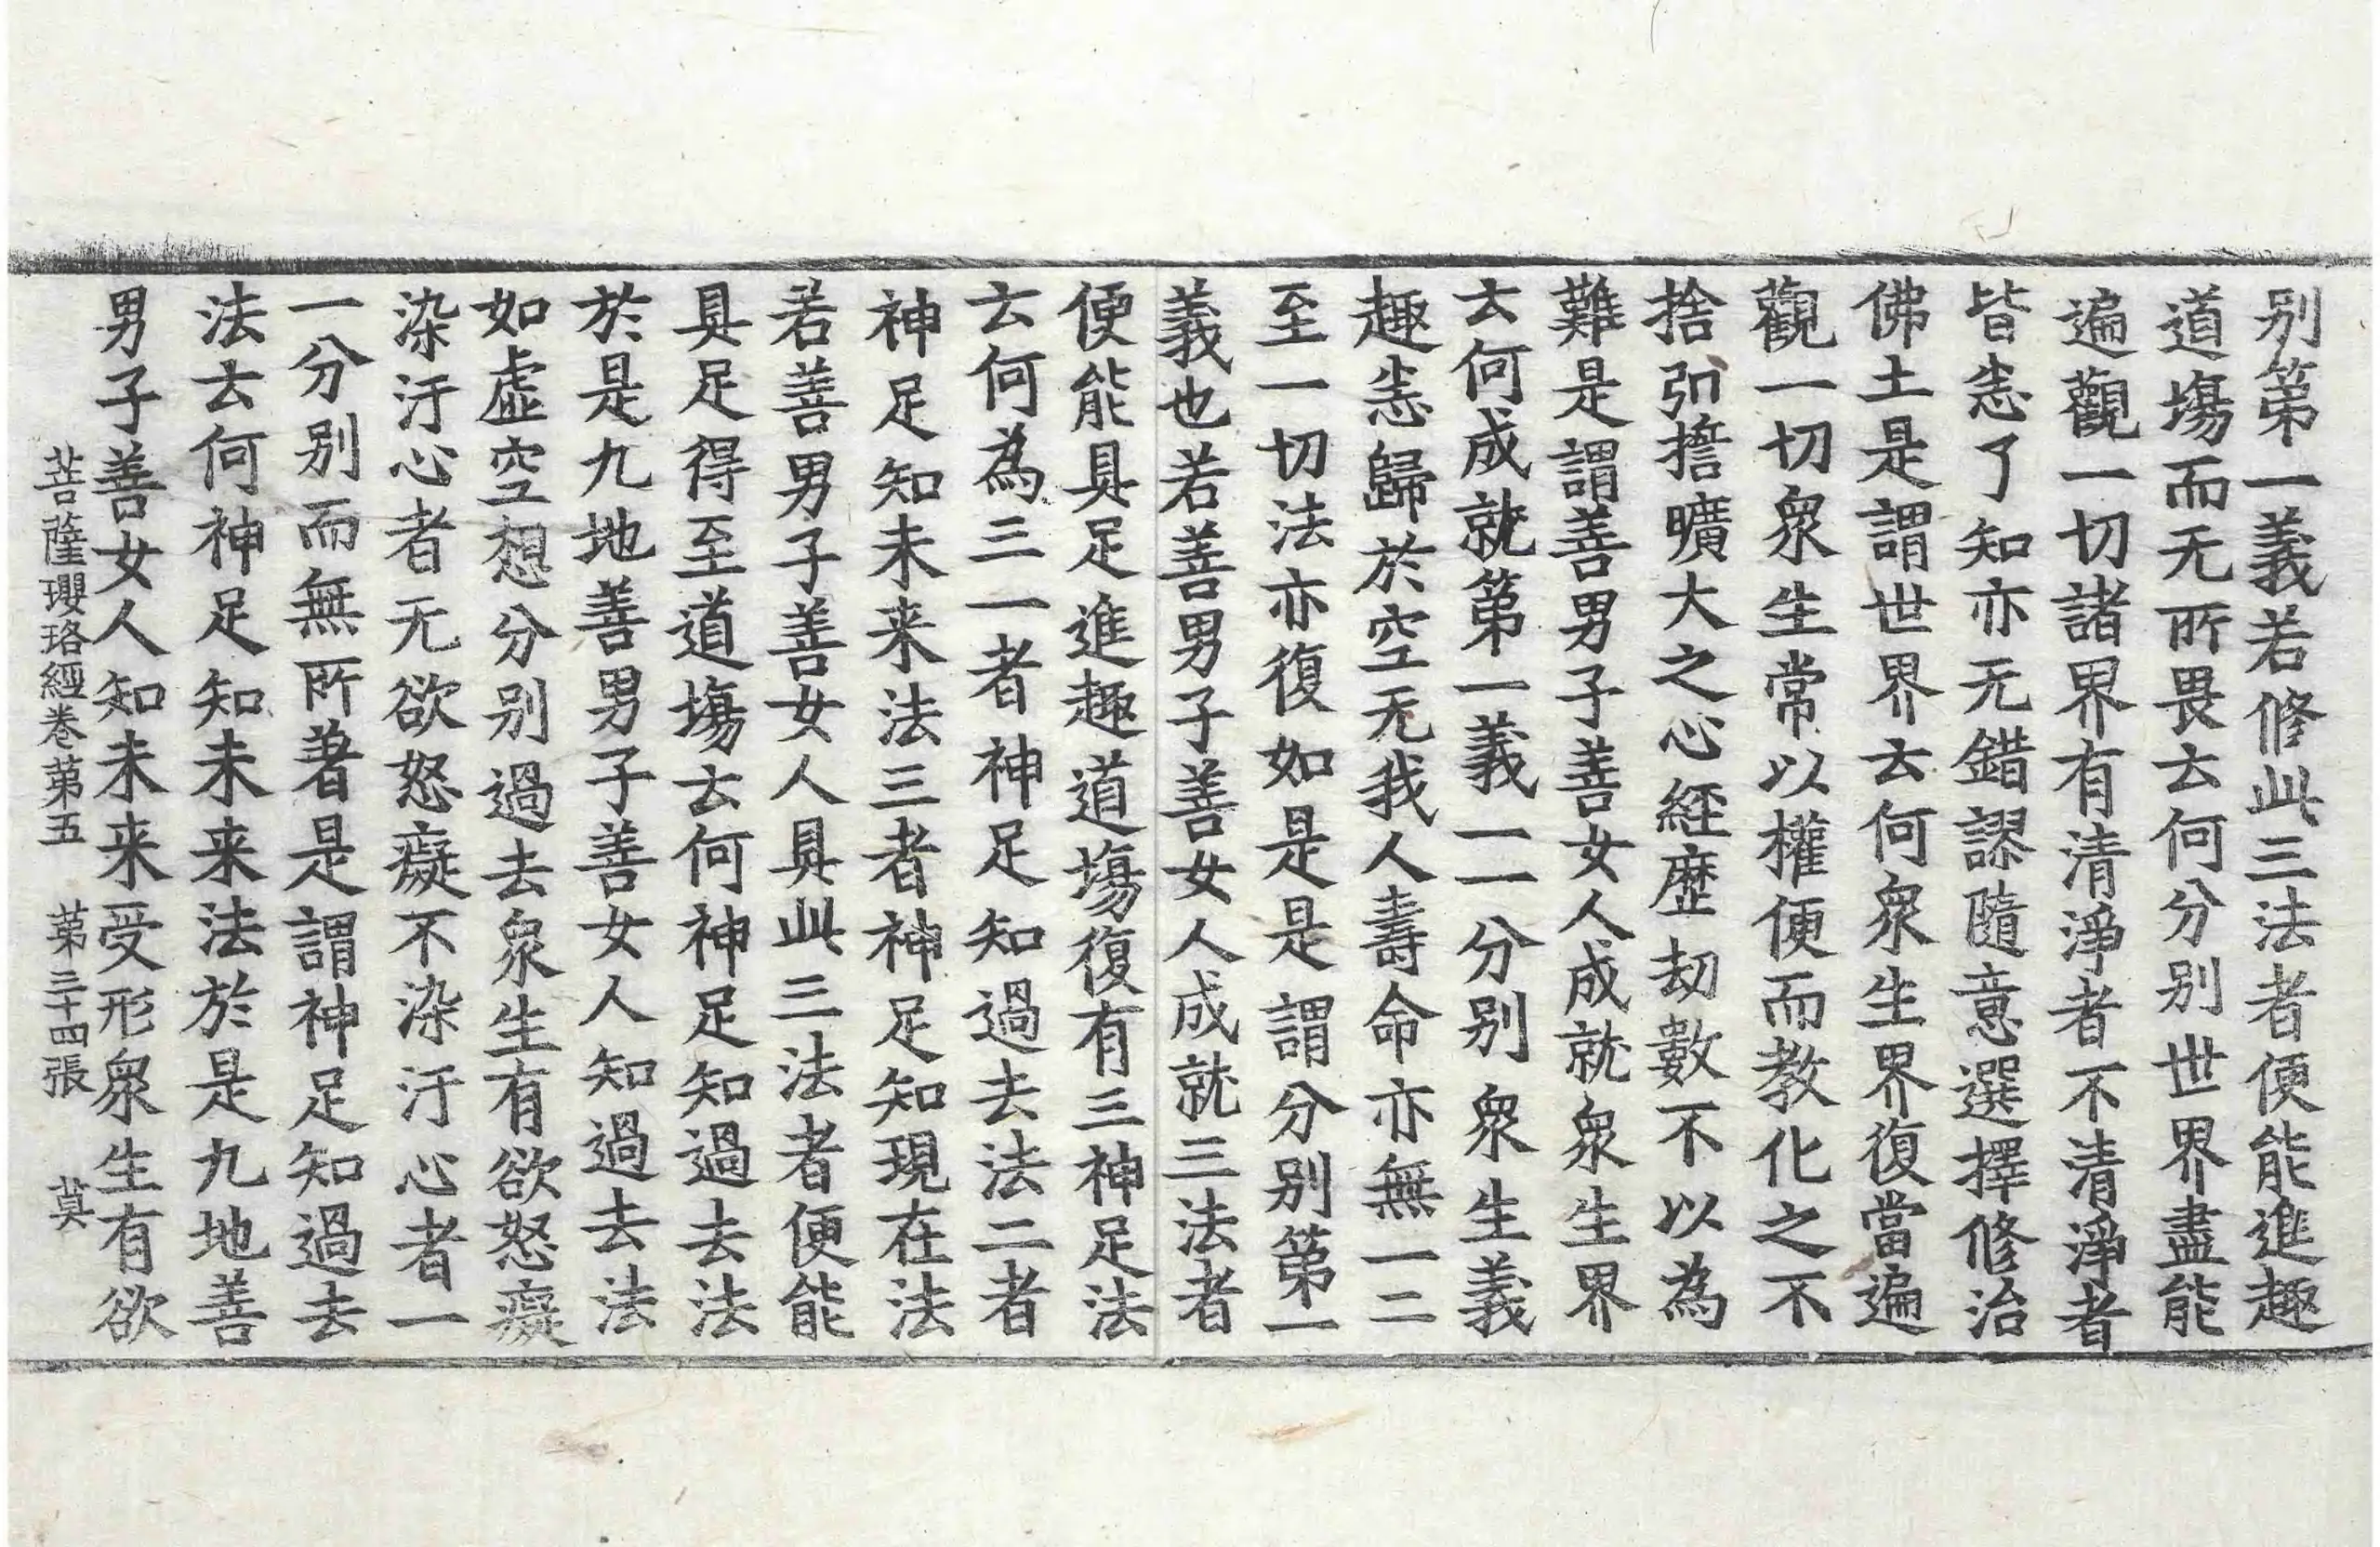 别第一義若修此三法者便能進趣
道塲而无所畏去何分别世界盡能
遍觀一切諸界有清淨者不清淨者
皆悉了知亦无錯謬隨意選擇修治
佛土是謂世界去何衆生界復當遍
觀一切衆生常以權便而教化之不
捨弘擔曠大之心經歷劫數不以為
難是謂善男子善女人成就衆生界
去何成就第一義一一分别衆生義
趣悉歸於空无我人壽命亦無一二
至一切法亦復如是是謂分别第一
義也若善男子善女人成就三法者
便能具足進趣道塲復有三神足法
去何為三一者神足知過去法二者
神足知未来法三者神足知現在法
若善男子善女人具此三法者便能
具足得至道塲去何神足知過去法
於是九地善男子善女人知過去法
如虚空想分别過去衆生有欲怒癡
染汙心者无欲怒癡不染汙心者一
一分别而無所著是謂神足知過去
法去何神足知未来法於是九地善
男子善女人知未来受形衆生有欲
菩薩瓔珞經卷第五 第三十四張 莫